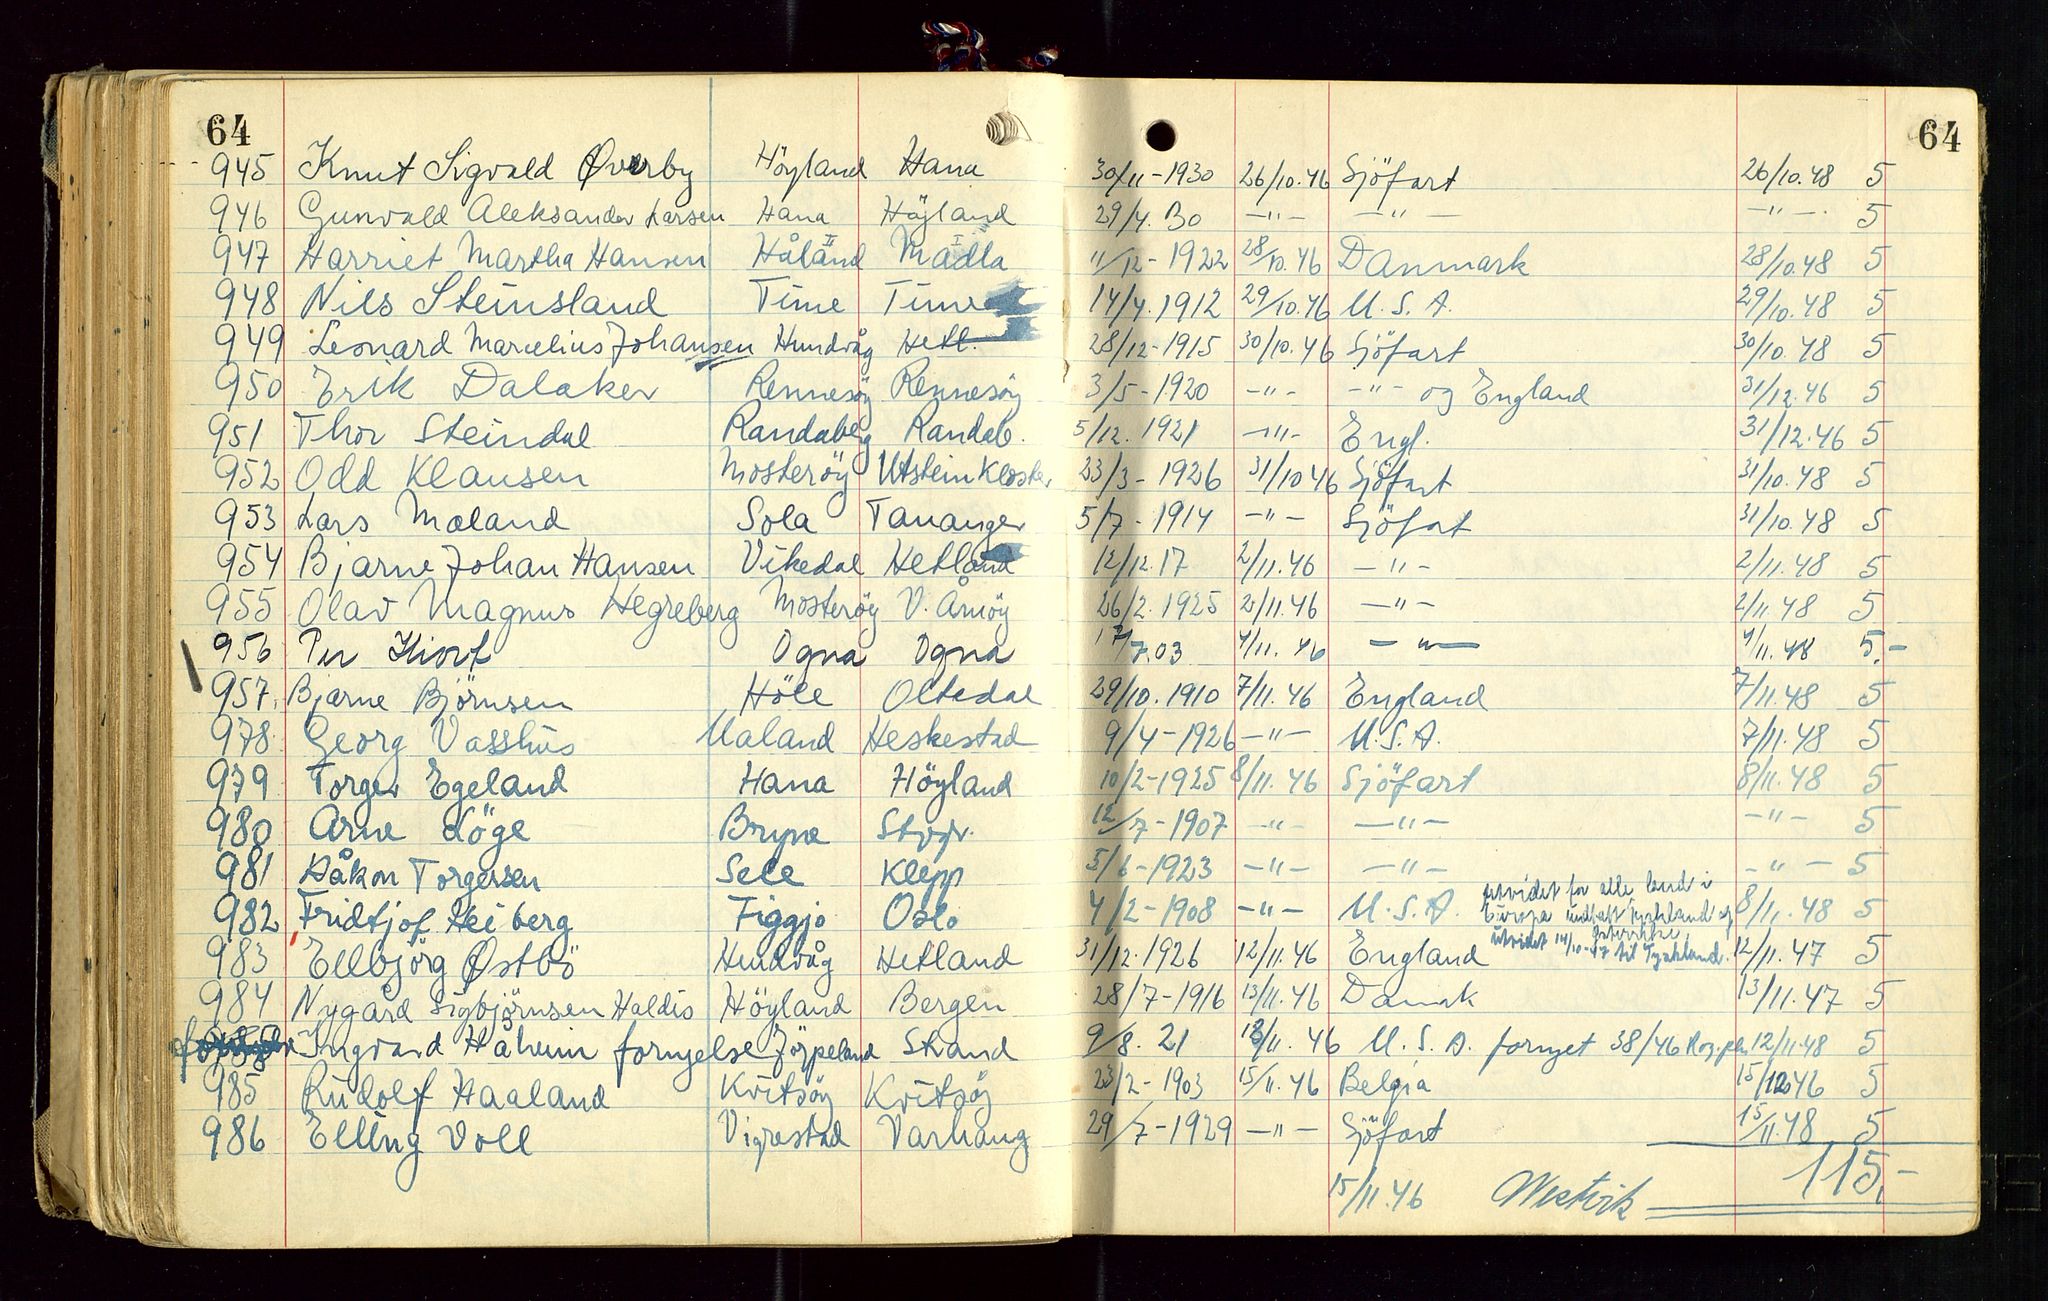 64 64
945 Knut Sigvald Øverby Höyland Hana 30/11-1930 26/10.46 Sjöfart 26/10.48 5
946 Gunvald Aleksander Larsen Hana Höyland 29/4.30 -"- -"- -"- 5
947 Harriet Martha Hansen Håland II Madla I 11/12-1922 28/10.46 Danmark 28/10.48 5
948 Nils Steinsland Time Time 14/4.1912 29/10.46 U.S.A. 29/10.48 5
949 Leonard Marcelius Johansen Hundvåg Hetl. 28/12-1915 30/10.46 Sjöfart 30/10.48 5
950 Erik Dalaker Rennesöy Rennesöy 3/5-1920 -"- -"- og England 31/12.46 5
951 Thor Steindal Randaberg Randab. 5/12.1921 -"- Engl. 31/12.46 5
952 Odd Klausen Mosteröy Utstein Kloster 23/3-1926 31/10 46 Sjöfart 31/10.48 5
953 Lars Mæland Sola Tananger 5/7-1914 -"- Sjöfart 31/10.48 5
954 Bjarne Johan Hansen Vikedal Hetland 12/12.17 2/11.46 -"- 2/11.48 5
955 Olav Magnus Hegreberg Mosteröy V. Åmöy 26/2.1925 2/11.46 -"- 2/11.48 5
956 Per Ogna Ogna 7.03 4/11.46 -"- 4/11.48 5.-
957. Bjarne Björnsen Höle Oltedal 29/10.1910 7/11.46 England 7/11.48 5
978 Georg Vasshus Maland Heskestad 9/4-1926 -"- U.S.A. 7/11.48 5
979 Torger Egeland Hana Höyland 10/2-1925 8/11.46 Sjöfart 8/11.48 5
980 Arne Löge Bryne Stvgr. 12/7-1907 -"- -"- -"- 5
981 Håkon Torgersen Sele Klepp 5/6-1923 -"- -"- -"- 5
982 Fridtjof Heiberg Figgjo Oslo 4/2-1908 -"- U.S.A. utvidet for alle land i Europa undtatt Tyskland og 8/11.48 5
983 Ellbjörg Østbö Hundvåg Hetland 31/12.1926 12/11.46 England utvidet 14/10-47 til Tyskland. 12/11.47 5
984 Nygård Sigbjörnsen Haldis Höyland Bergen 28/7-1916 13/11.46 Dansk 13/11.47 5
Ingvard Håheim fornyelse Jörpeland Strand 9/8.21 12/11.46 U.S.A. fornyet 38/46 12/11.48 5
985 Rudolf Haaland Kvitsöy Kvitsöy 23/2-1903 15/11.46 Belgia 15/12 46 5
986 Elling Voll Vigrestad Varhaug 29/7-1929 -"- Sjöfart 15/11.48 5
115.-
15/11.46 Westvik